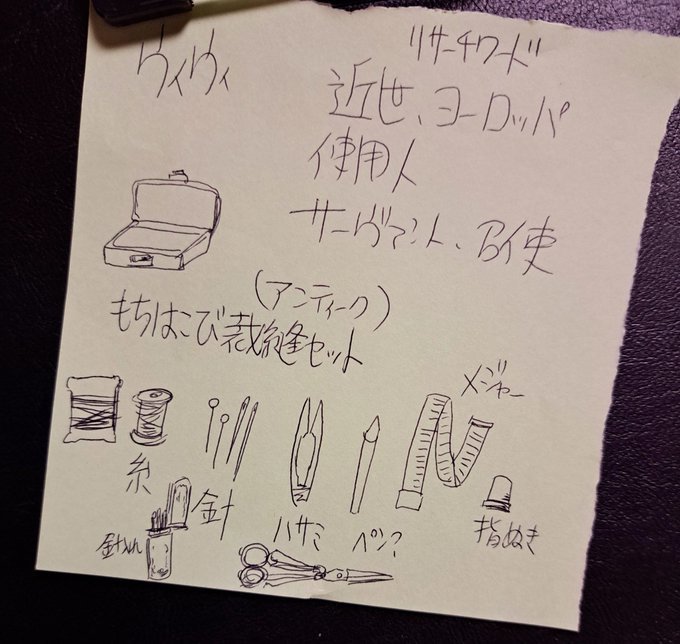 ヴィヴィ
リサーチワード
近世、ヨーロッパ
使用人
サーヴァント、召使
(アンティーク)
もちはこび裁縫セット
メジャー
糸
針
ハサミ
ペン?
指ぬき
針入れ